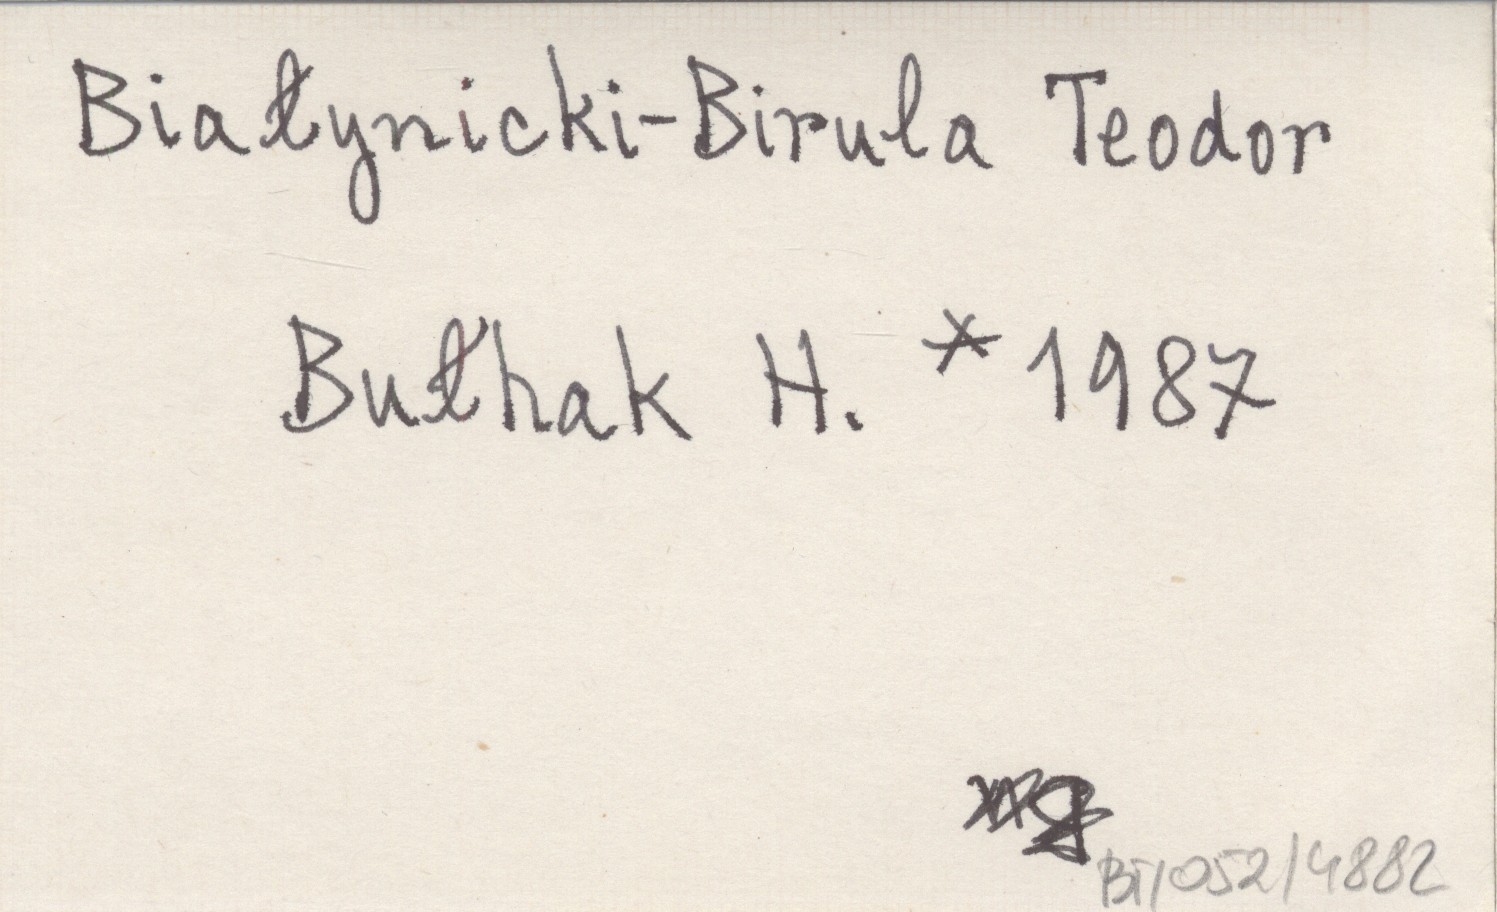 Białynicki-Birula Teodor
Bułhak H. * 1987
BT/052/4882